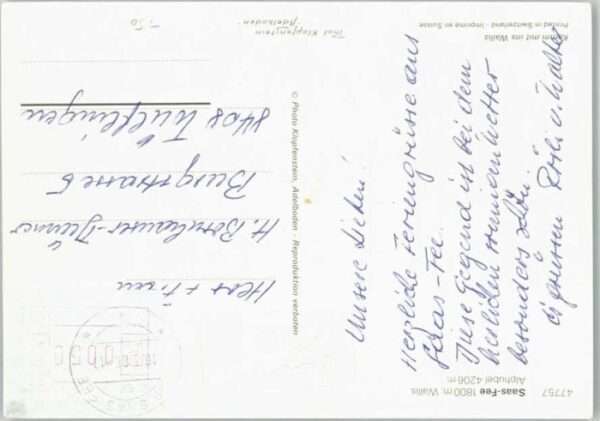 47757
Saas-Fee 1800 m, Wallis
Alphubel 4206 m
Unsere Lieben!
Herzliche Feriengrüsse aus
Saas-Fee.
Diese Gegend ist bei dem
herrlichen sonnigen Wetter
besonders schön.
Es grüssen Rösli u. Walter
© Photo Klopfenstein, Adelboden · Reproduktion verboten
Komm mit ins Wallis
Printed in Switzerland · Imprimé en Suisse
Herr + Frau
H. Bornhauser-
Burgstrasse 6
8408 Wülflingen
Klopfenstein
Adelboden
SAAS-FEE